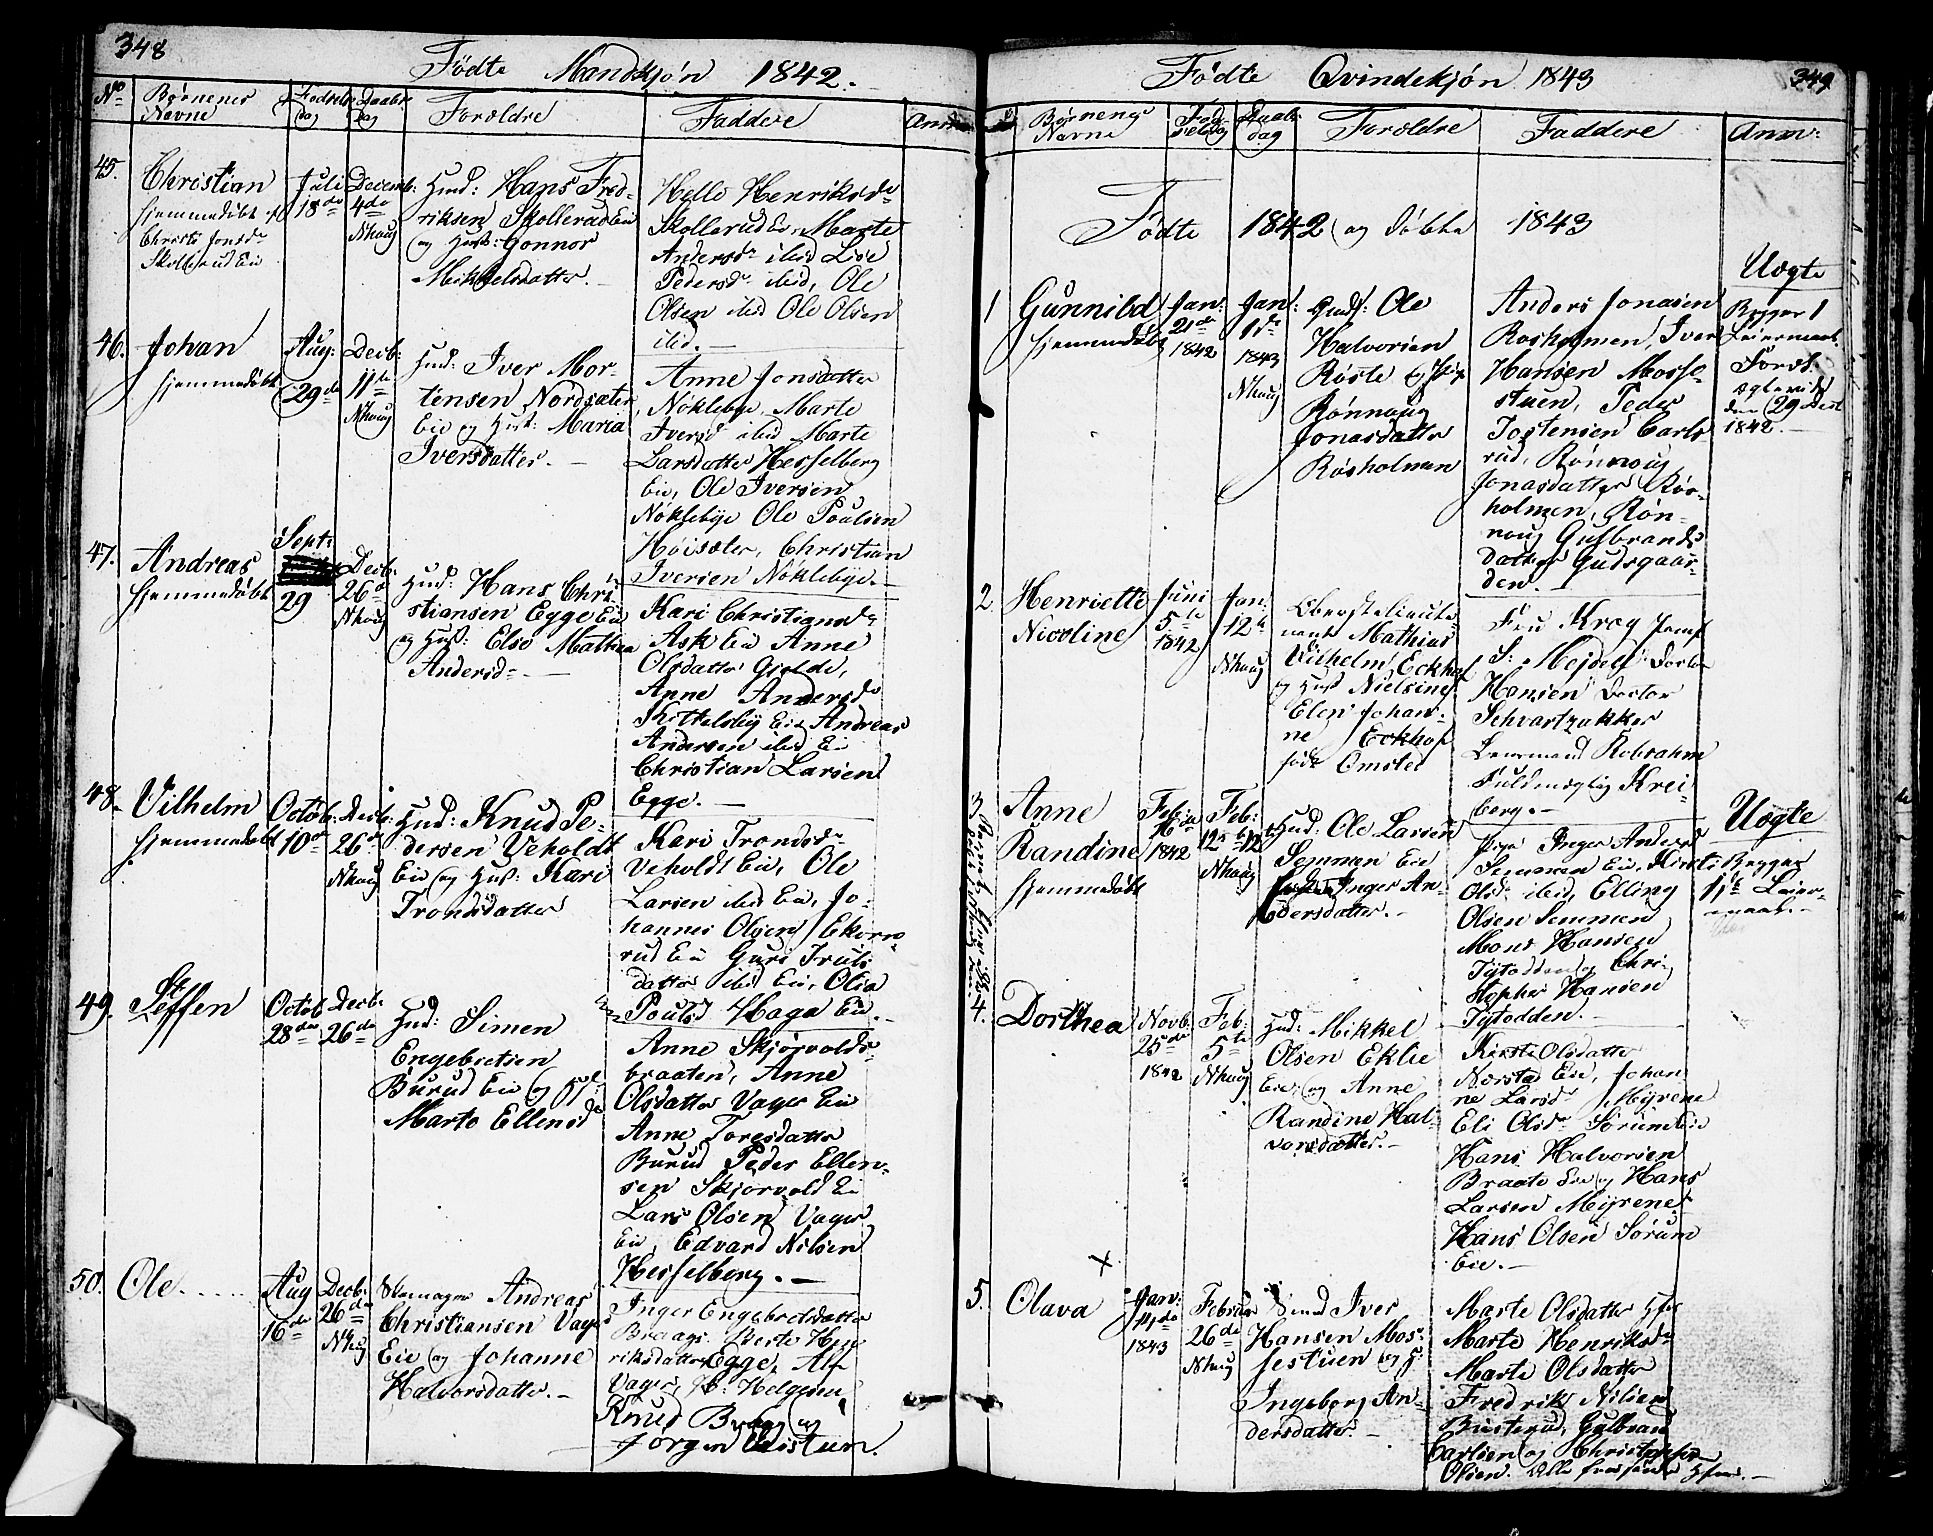 348
Födte Mandkjøn 1842.
No Børnenes Navne Fødselsdag Daabsdag Forældre Faddere Anm
45.
Christian
hjemmedøbt af
Christi Jonsdr
Skollerud Eie
Juli
18de
Decemb:
4de
Nhaug
Husb: Hans Fred-
riksen Skollerud Eie
og Hust: Gonnor
Mikkelsdatter.
Helle Henriksdr
Skollerud Eie, Marte
Andersdr ibid Lise
Pedersdr ibid, Ole
Olsen ibid Ole Olsen
ibid.
46.
Johan
hjemmedøbt
Aug:
29de
Decb:
11te
Nhaug
Husb: Iver Mor-
tensen Nordsæter
Eie og Hust: Maria
Iversdatter.
Anne Jonsdatter
Nøklebye, Marte
Iversd ibid Marte
Larsdatter Hesselberg
Eie, Ole Iversen
Nøklebye Ole Poulsen
Høisæter, Christian
Iversen Nøklebye.
47.
Andreas
hjemmedøbt
Sept:
29
Decb:
26de
Nhaug
Husb: Hans Chri-
stiansen Egge Eie
og Hust: Else Mathea
Andersd.
Kari Christiansdr
Ask Eie Anne
Olsdatter Gjelde,
Anne Andersdr
Kittelsby Eie Andreas
Andersen ibid Ei
Christian Larsen
Egge.
48.
Vilhelm
hjemmedøbt
Octob:
10de
Decb:
26de
Nhaug
Husb: Knud Pe-
dersen Veholdt
Eie og Hust: Kari
Trondsdatter
Kari Trondsdr
Veholdt Eie, Ole
Larsen ibid Eie, Jo-
hannes Olsen Ekorn-
rud Eie Guri Truls
datter ibid Eie, Olia
Poulsd Haga Eie.
49.
Steffen
Octob
28de
Decb:
26de
Husb: Simen
Engebretsen
Burud Eie og
Marte Ellensd
Anne Skjørvolds-
braaten, Anne
Olsdatter Vager Eie
Anne Toresdatter
Burud Peder Ellen-
sen Skjørvold Eie
Lars Olsen Vager
Eie, Edvard Nilsen
Hesselberg.
50.
Ole
Aug
16de
Decb:
26de
Nhaug
Andreas
Christiansen Vager
Eie og Johanne
Halvorsdatter.
Inger Engebretsdatter
Braager Berte Hen-
riksdatter Egge, Alf
Vager, Helgesen
Knud Braager og
Jørgen
349
Födte Qvindekjøn 1843
Børnenes Navne Fødselsdag Daabsdag Forældre Faddere Anm:
Födte 1842 og döbte 1843
1
Gunnild
hjemmedøbt
Jan:
21de
1842
Jan:
1ste
1843
Nhaug
Husb: Ole
Halvorsen
Røste og Pige
Rønnaug
Jonasdatter
Røsholmen
Anders Jonasen
Rosholmen, Iver
Hansen Mosse-
stuen, Peder
Tostensen Carls-
rud, Rønnoug
Jonasdatter Røs-
holmen, Røn-
noug Gulbrands
datter Gudsgaar-
den.
Uægte
Begges 1
Leiermaal
Foreld:
ægteviet
den 29 Decb
1842.
2.
Henriette
Nicoline
Juni
5te
1842
Jan:
12te
Nhaug
Oberstlieute-
nant Mathias
Vilhelm Eckhof
og Hust Nielsine
Elen Johan-
ne Eckhof
født Omsted
Fru Krog
S: Mejdell Doctor
Hansen Doctor
Schvartzakker
Lensmand Robsahm
Fuldmægtig Krei-
berg.
3
Anne
Randine
hjemmedøbt
Feb:
16de
1842
Feb:
12te
Nhaug
Husb: Ole Larsen
Semmen Eie
Inger An-
dersdatter.
Pige Inger Andersd
Semmen Eie, Kirsti
Olsd: ibid, Elling
Olsen Semmen
Mons Hansen
Tytodden og Chri-
stopher Hansen
Tytodden.
Uægte
Begges
11te Leier-
maal.
4.
Dorthea
Novb:
25de
1842
Feb:
5te
Nhaug
Husb: Mikkel
Olsen Eklie
Eie, og Anne
Randine Hal-
vorsdatter.
Kirsti Olsdatter
Norsta Eie, Johan-
ne Larsd Myrene
Eli Olsdr Sørum Eie
Hans Halvorsen
Braate Eie og Hans
Larsen Myrene
Hans Olsen Sørum
Eie.
5.
Olava
Janr:
1843
Februar
26de
Nhaug
Husmd Iver
Hansen Mos-
sestuen og H:
Ingeborg An-
dersdatter.
Marte Olsdatter
Marte Henriksdr
Marte Olsdatter
Fredrik Nilsen
Busterud, Gulbrand
Carlsen og Christopher
Olsen. Alle